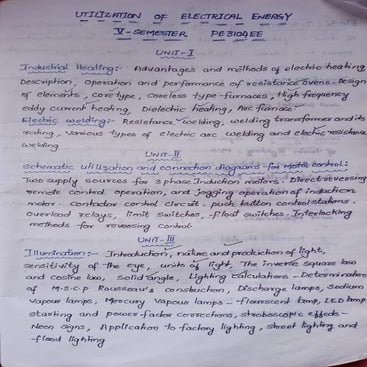 UTILIZATION OF ELECTRICAL ENERGY
V-SEMESTER PE3104EE
UNIT-I
Industrial Heating:- Advantages and methods of electric heating
Description, operation and performance of resistance ovens - Design
of elements, core type, coreless type furnaces, High frequency
eddy current heating, Dielectric heating, Arc furnace
Electric welding:- Resistance welding, welding transformer and its
rating, Various types of electric arc welding and electric resistance
welding
UNIT-II
Schematic utilization and connection diagrams for motor control:
Two supply sources for 3 phase Induction motors. Direct reversing
remote control operation, and jogging operation of induction
motor. contactor control circuit. push button control stations.
overload relays, limit switches, float switches. Interlocking
methods for reversing control.
UNIT-III
Illumination:- Introduction, nature and production of light,
sensitivity of the eye, units of light, The inverse square law
and cosine law, Solid angle, Lighting calculations - Determination
of M.S.C.P Rousseau's construction, Discharge lamps, Sodium
Vapour lamps, Mercury Vapour lamps - flourescent lamp, LED lamp
starting and power factor corrections, stroboscopic effects -
Neon signs, Application to factory lighting, street lighting and
flood lighting